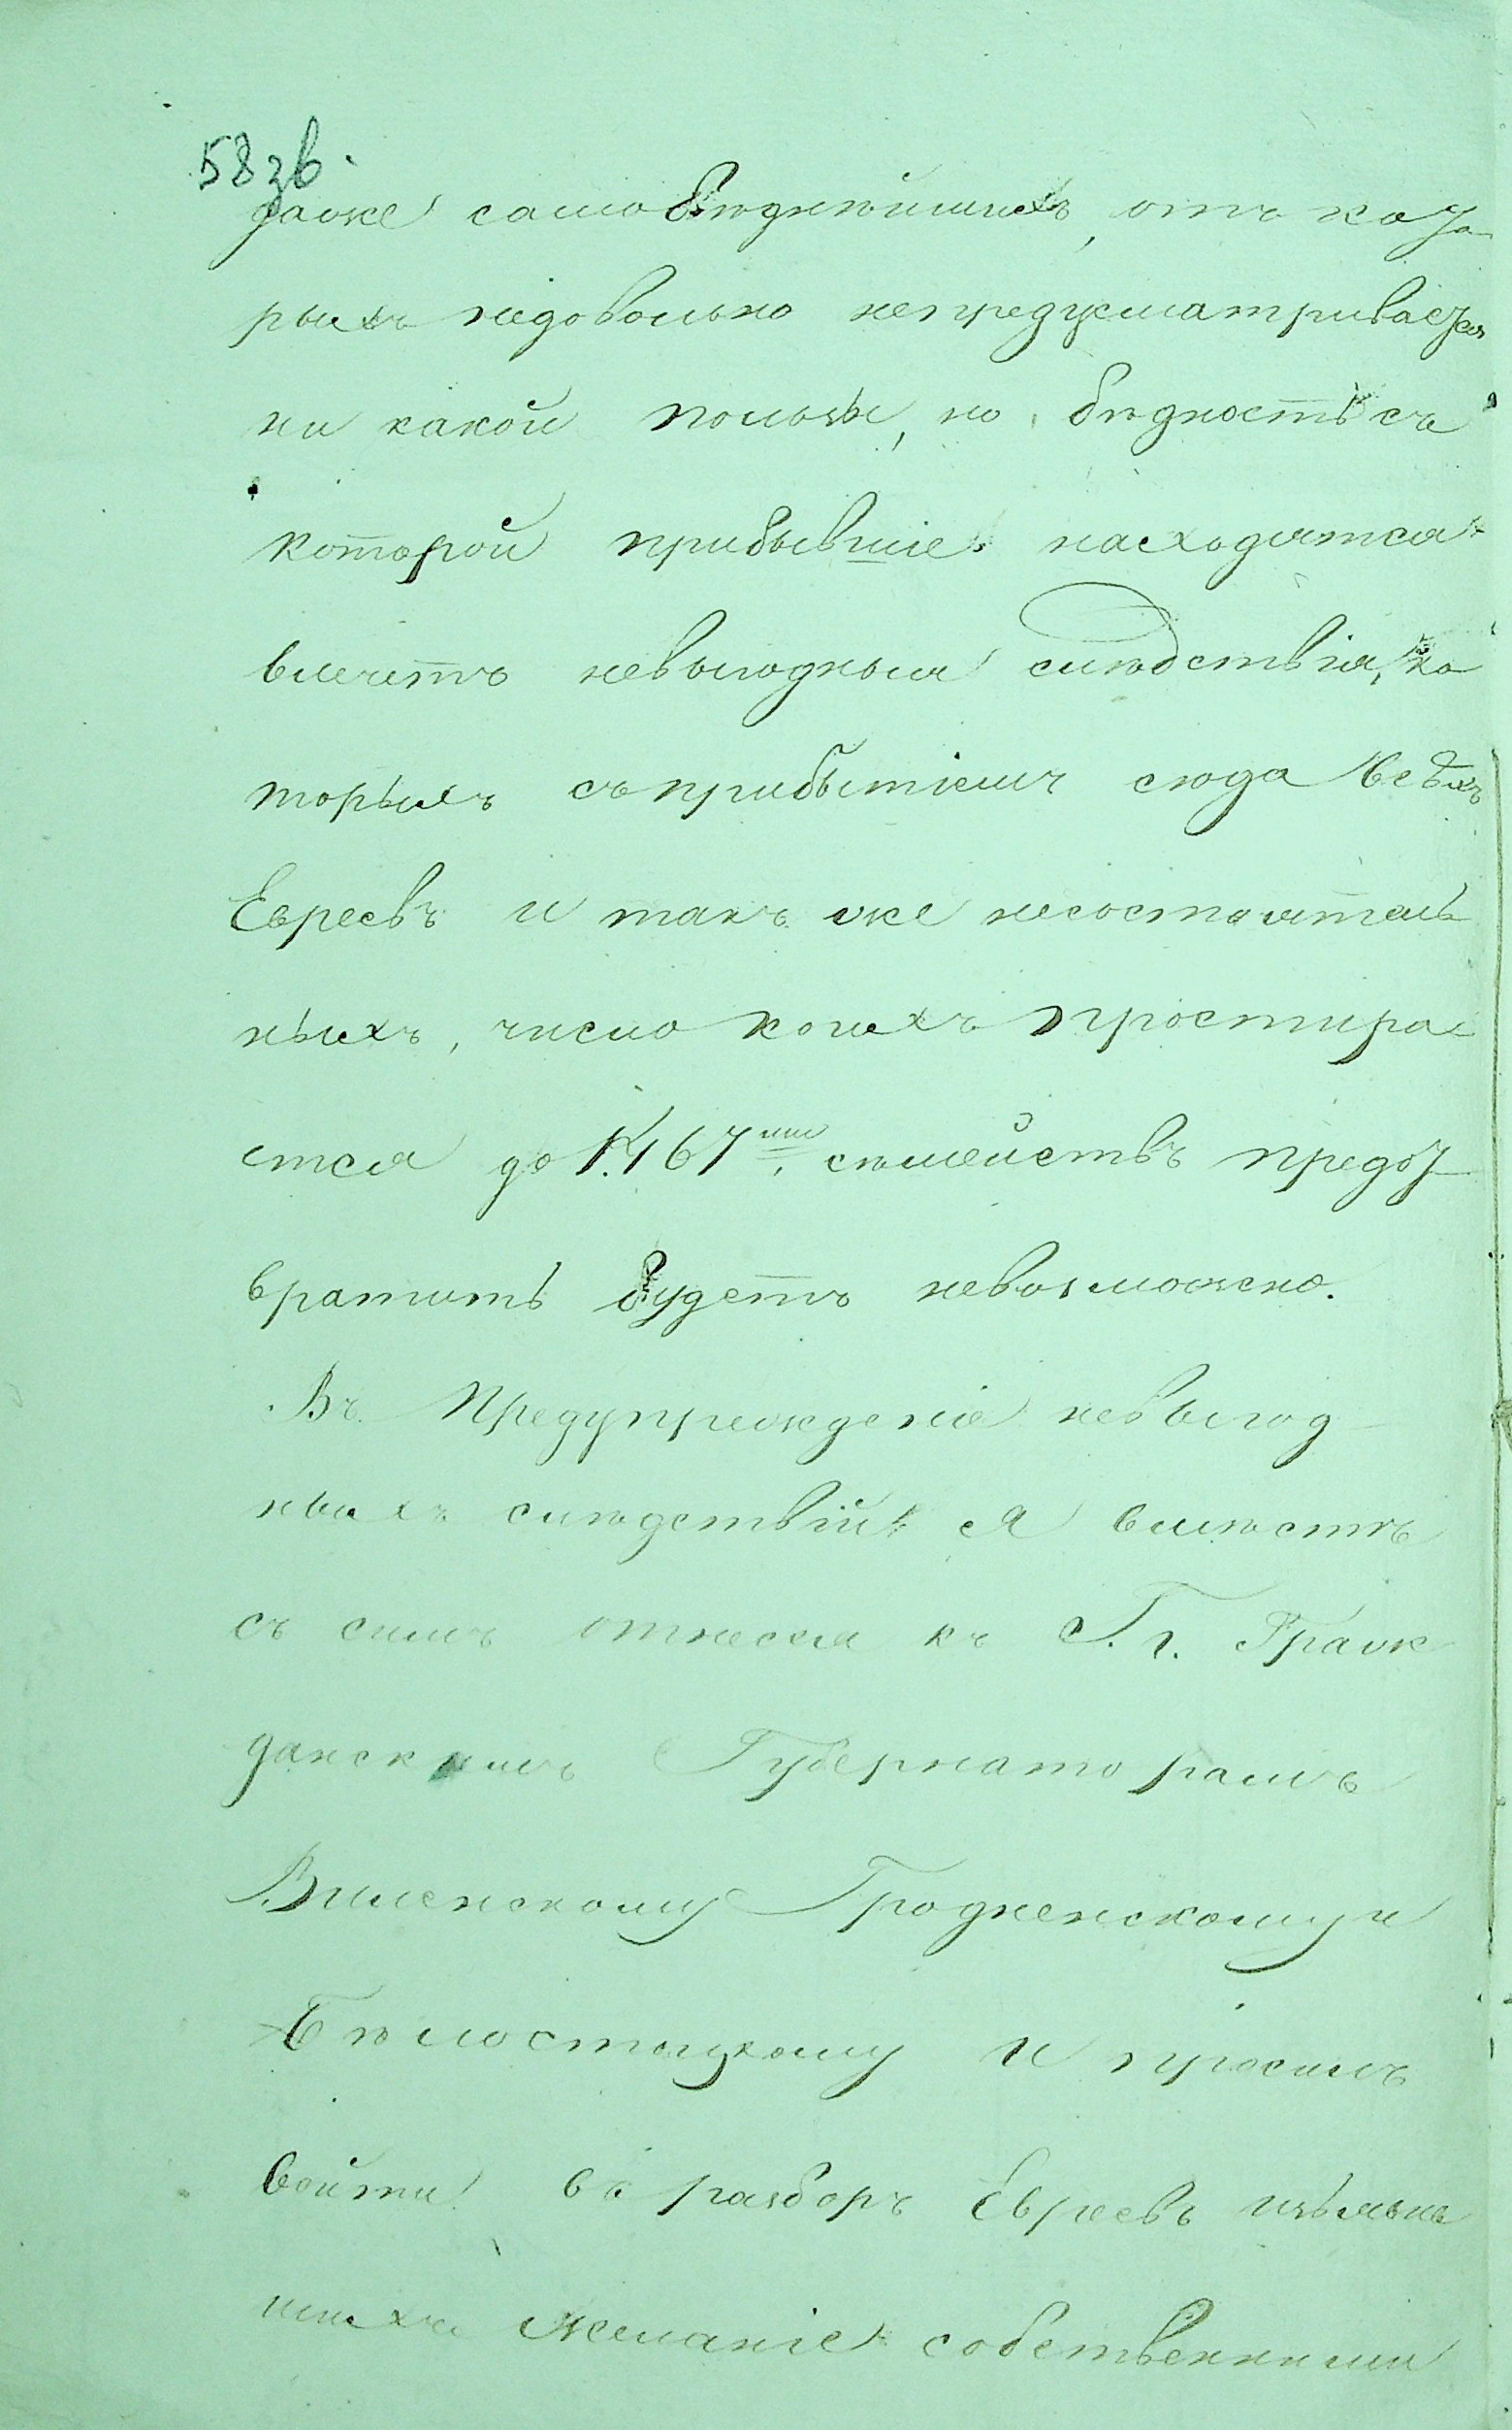 58 зв.
даже самобѣднѣйшихъ, отъ кото
рыхъ недовольно непредусматривается
ни какой пользы, но бѣдность съ
которой прибывшіе находятся
влечетъ невыгодныя слѣдствія, ко
торыхъ съ прибытіемъ сюда всѣхъ
Евреевъ и такъ же несостоятель
ныхъ, число коихъ простира
ется до 1.467ми семействъ предот
вратить будетъ невозможно.
Въ предупрежденіе невыгод
ныхъ слѣдствій я вмѣстѣ
съ симъ отнесся къ Г. г. Граж
данскимъ Губернаторамъ
Виленскому Гродненскому и
Бѣлостоцкому и просилъ
войти въ разборъ Евреевъ изъявив
шихъ желаніе собственными